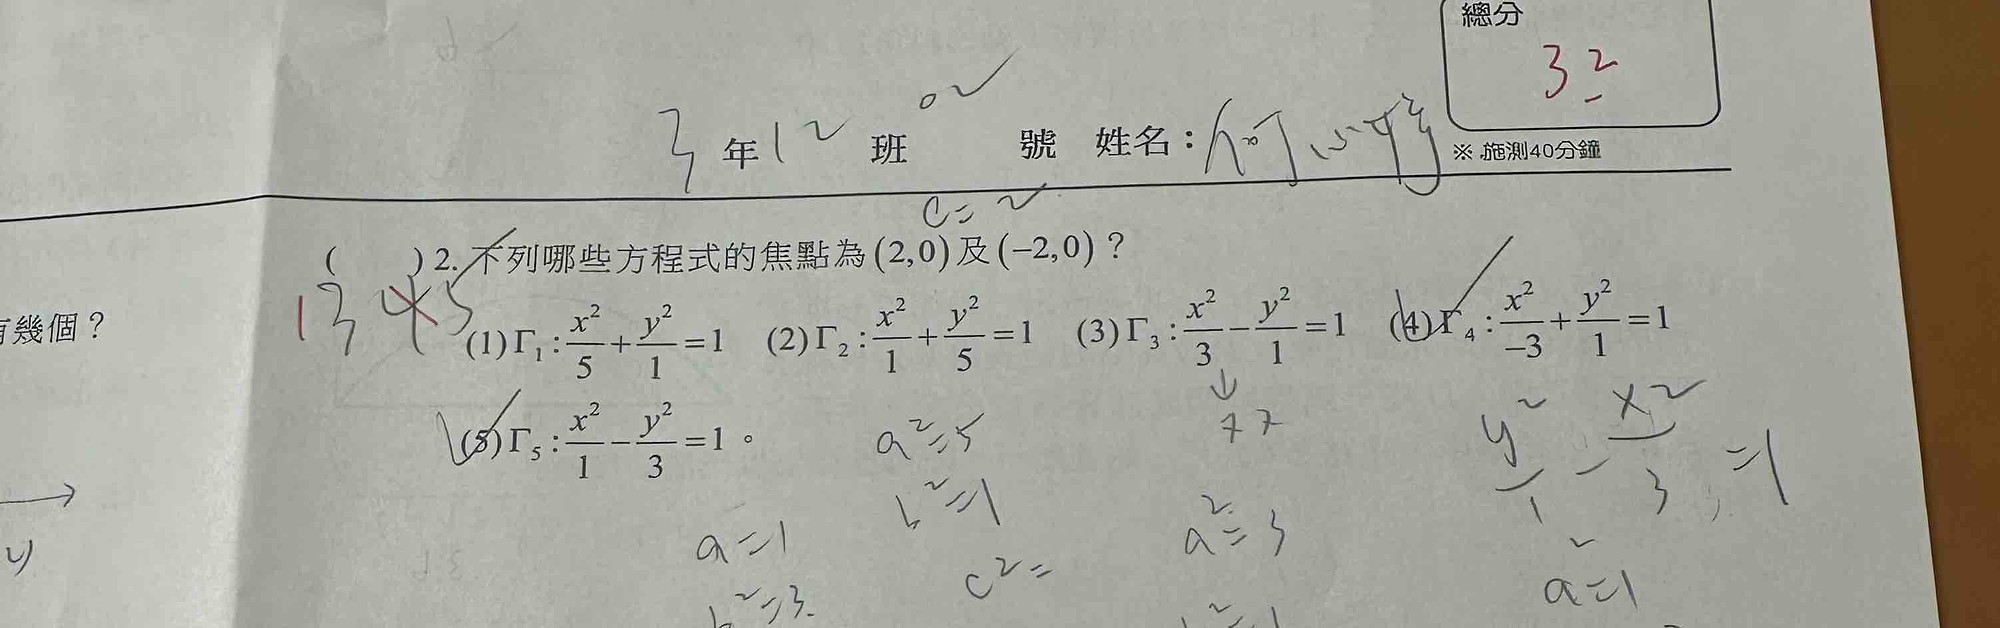 總分
32
3年12班 02號 姓名：何
※ 施測40分鐘
c=2
( 1345 )2. 下列哪些方程式的焦點為(2,0)及(−2,0)？
有幾個？
(1)Γ₁: x²/5 + y²/1 = 1 (2)Γ₂: x²/1 + y²/5 = 1 (3)Γ₃: x²/3 − y²/1 = 1 (4)Γ₄: x²/−3 + y²/1 = 1
(5)Γ₅: x²/1 − y²/3 = 1。
a²=5
y²/1 − x²/3 = 1
b²=1
a=1
a²=3
c²=
a²=1
b²=3
b²=1